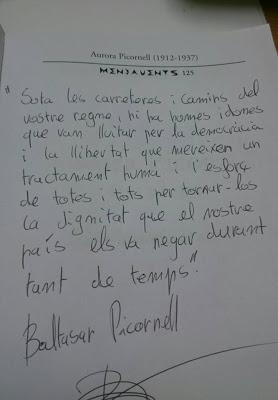 Aurora Picornell (1912-1937)
MENJAVENTS 125
"Sota les carreteres i camins del
vostre regne, hi ha homes i dones
que van lluitar per la democràcia
i la llibertat que mereixen un
tractament humà i l'esforç
de totes i tots per tornar-los
la dignitat que el nostre
país els va negar durant
tant de temps."
Baltasar Picornell